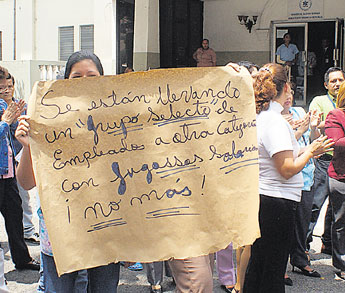 Se están llevando
un "grupo selecto" de
Empleado a otra Categoría
con jugosos Salarios
¡no más!